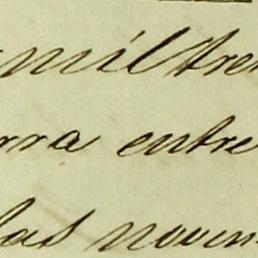 mil tre
rra entre
las novem